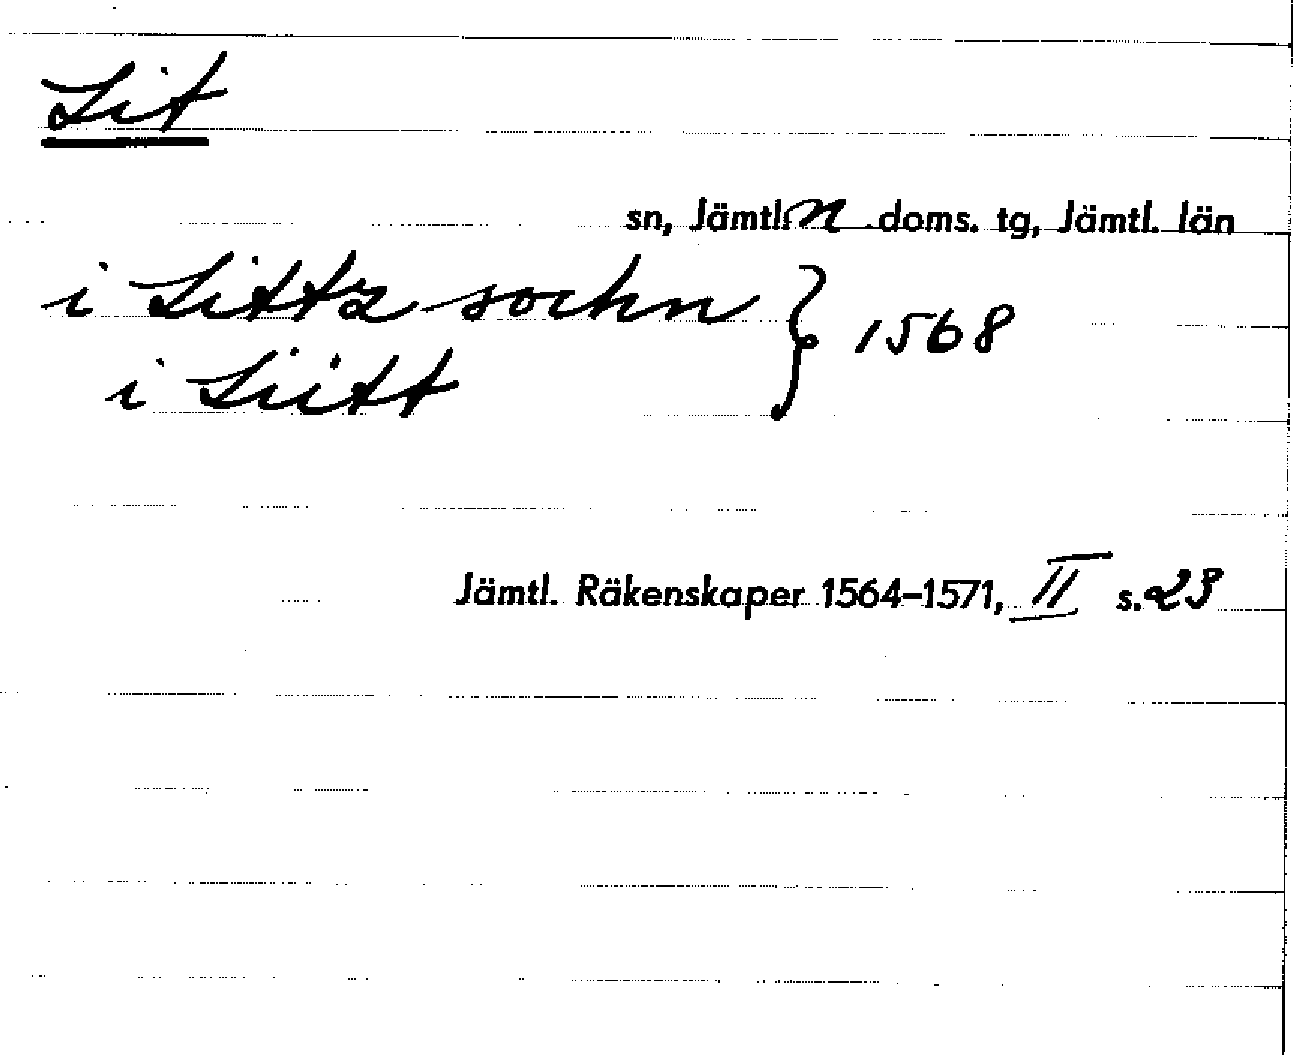 Lit
sn, Jämtl. n doms. tg, Jämtl. län
i Littz sochn } 1568
i Liitt
Jämtl. Räkenskaper 1564–1571, II s. 23